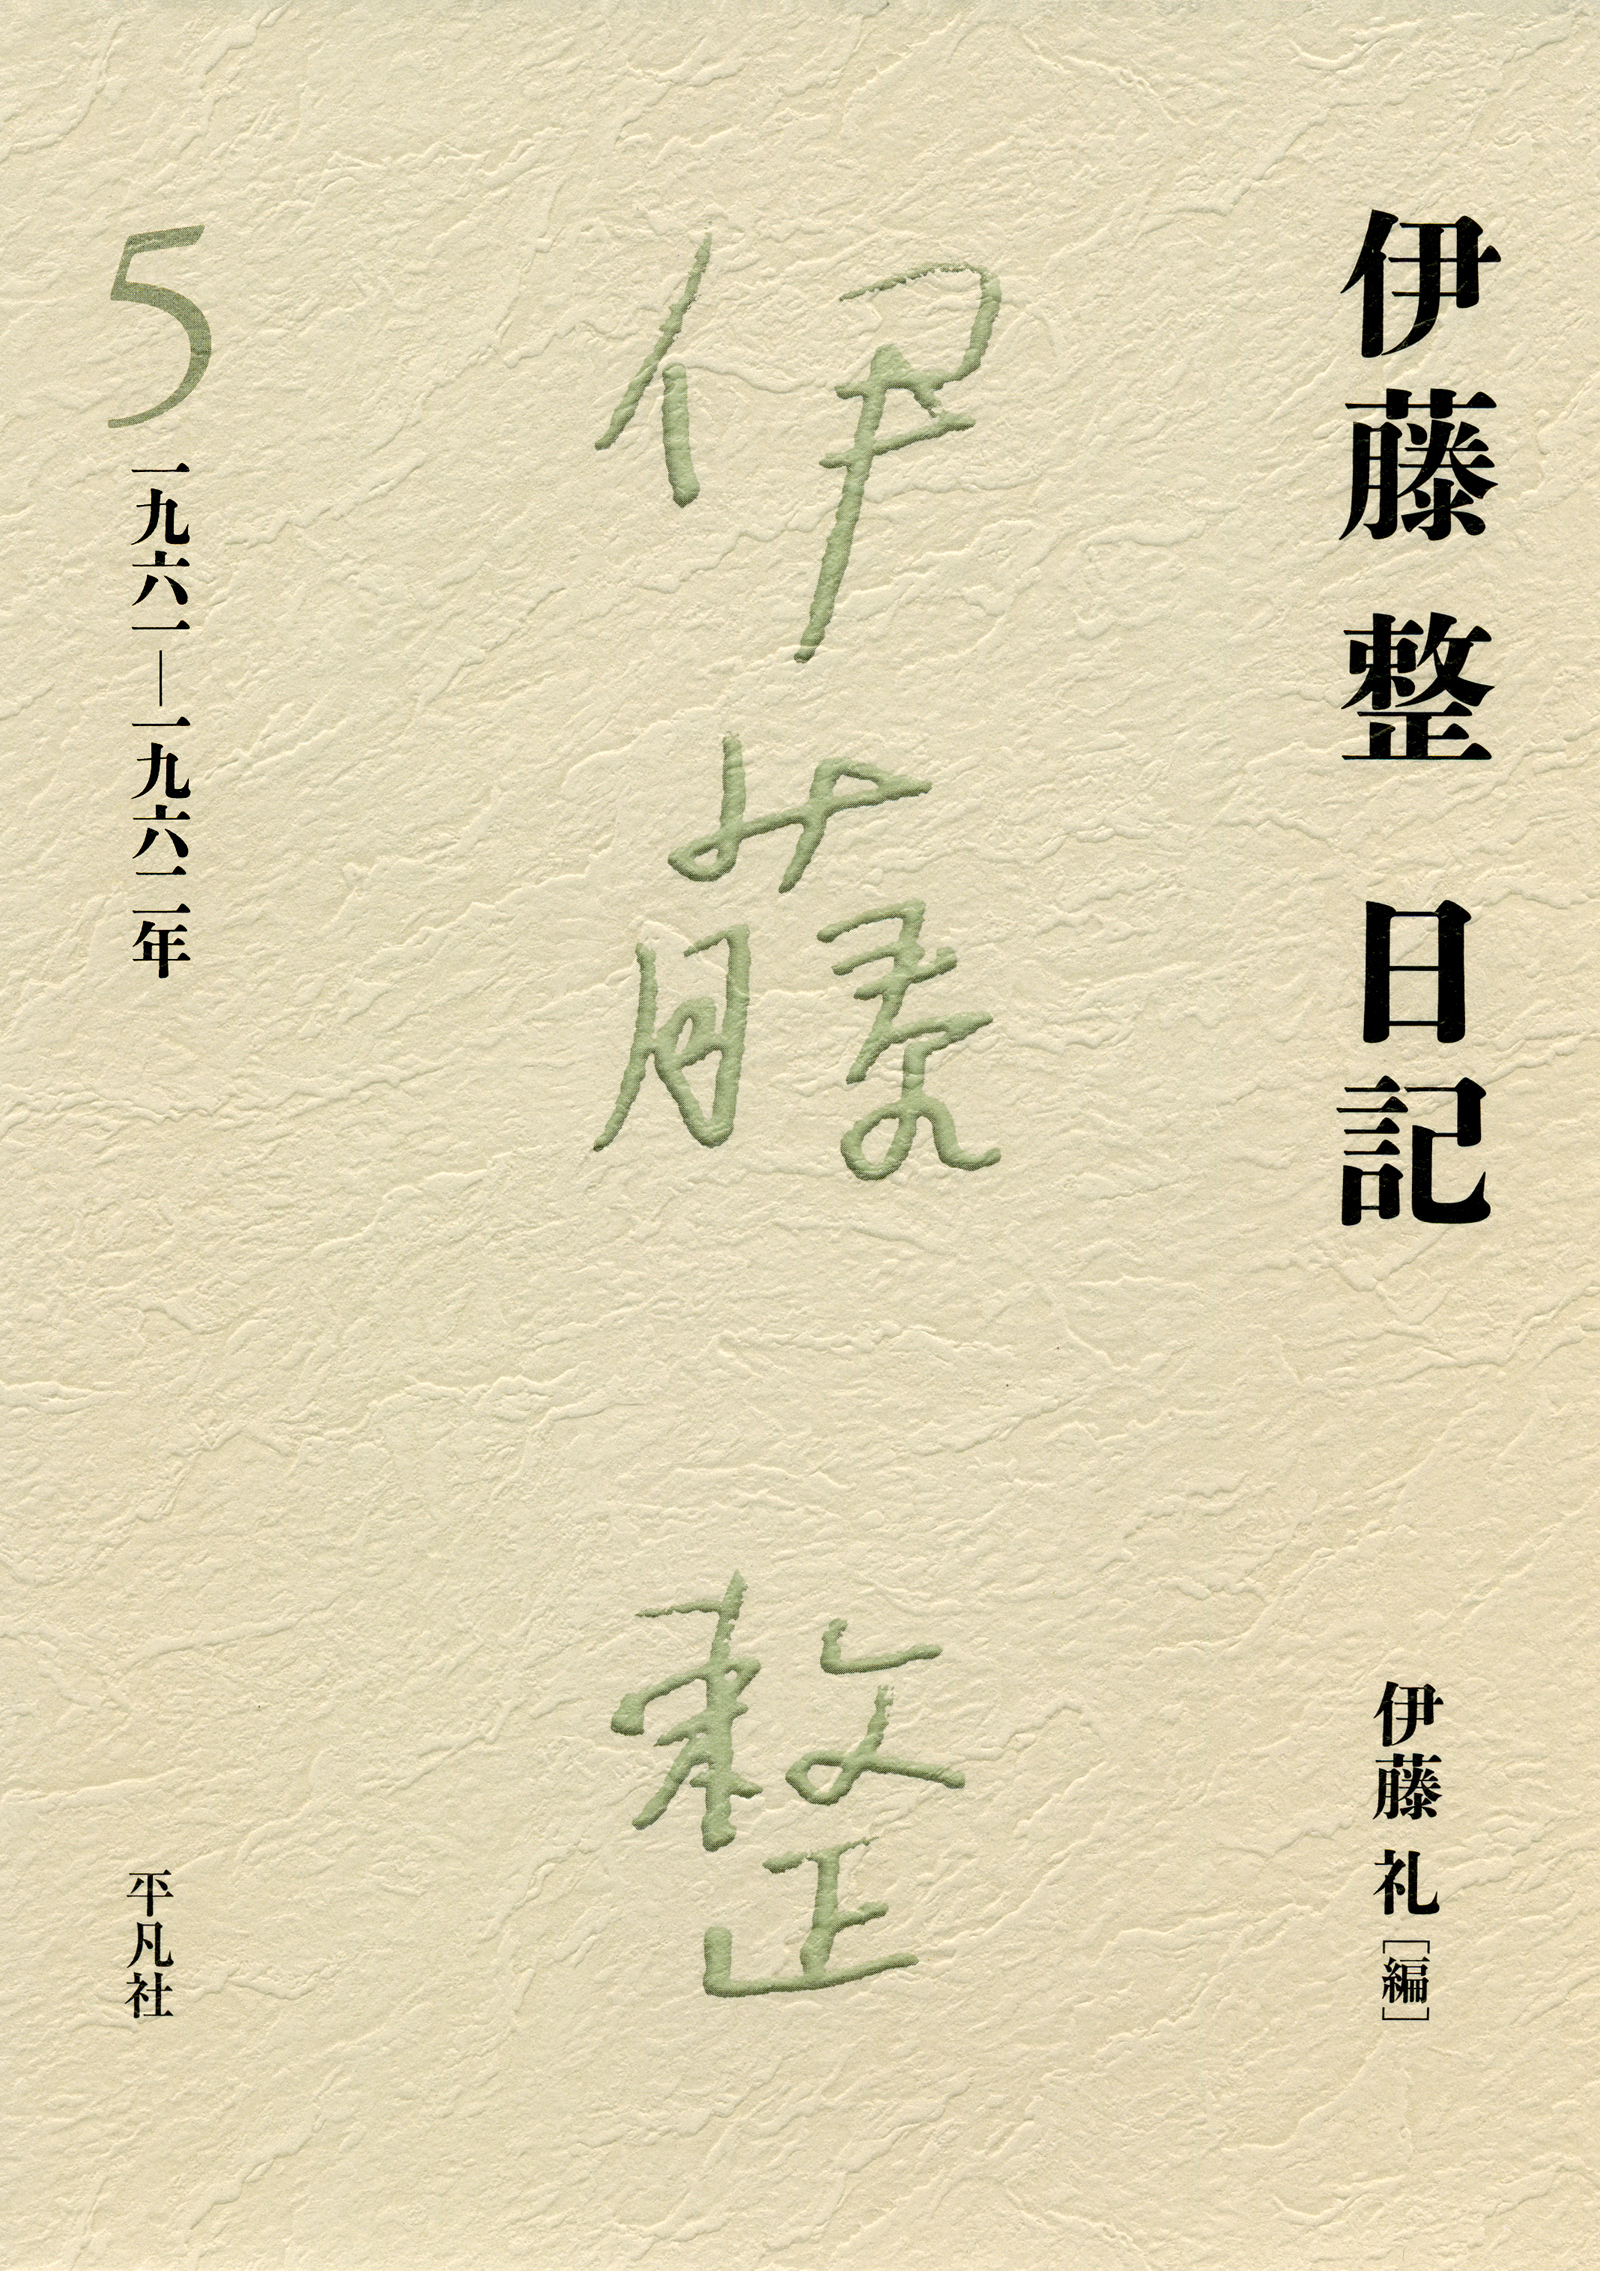 伊藤整 日記
伊藤 礼[編]
伊藤 整
5
一九六一―一九六二年
平凡社